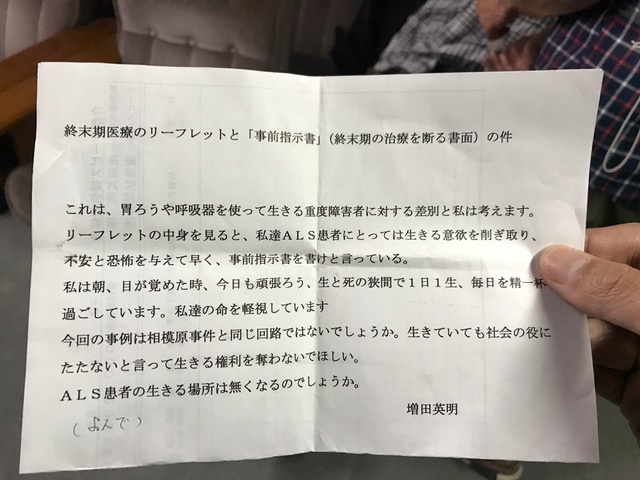 終末期医療のリーフレットと「事前指示書」（終末期の治療を断る書面）の件
これは、胃ろうや呼吸器を使って生きる重度障害者に対する差別と私は考えます。
リーフレットの中身を見ると、私達ＡＬＳ患者にとっては生きる意欲を削ぎ取り、
不安と恐怖を与えて早く、事前指示書を書けと言っている。
私は朝、目が覚めた時、今日も頑張ろう、生と死の狭間で１日１生、毎日を精一杯
過ごしています。私達の命を軽視しています
今回の事例は相模原事件と同じ回路ではないでしょうか。生きていても社会の役に
たたないと言って生きる権利を奪わないでほしい。
ＡＬＳ患者の生きる場所は無くなるのでしょうか。
増田英明
（よんで）